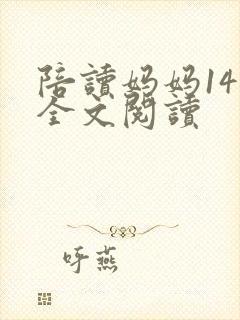 陪讀妈妈14
全文閱讀
呼燕